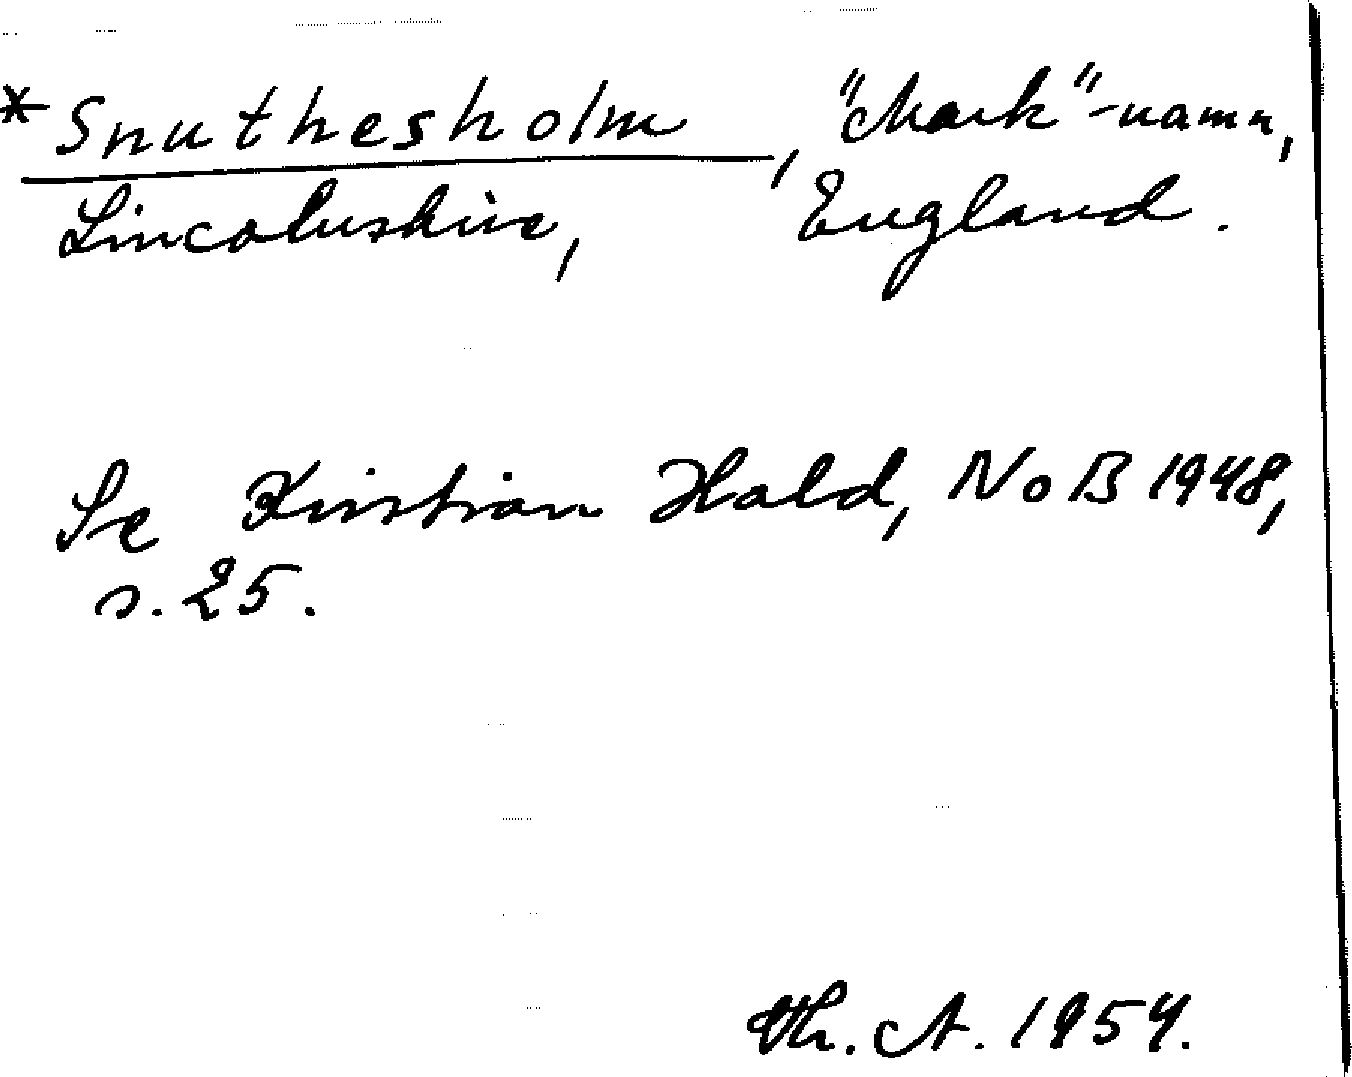 *Snuthesholm, "Mark"-namn,
Lincolnshire, England.
Se Kristian Hald, NoB 1948,
s. 25.
Th. A. 1954.